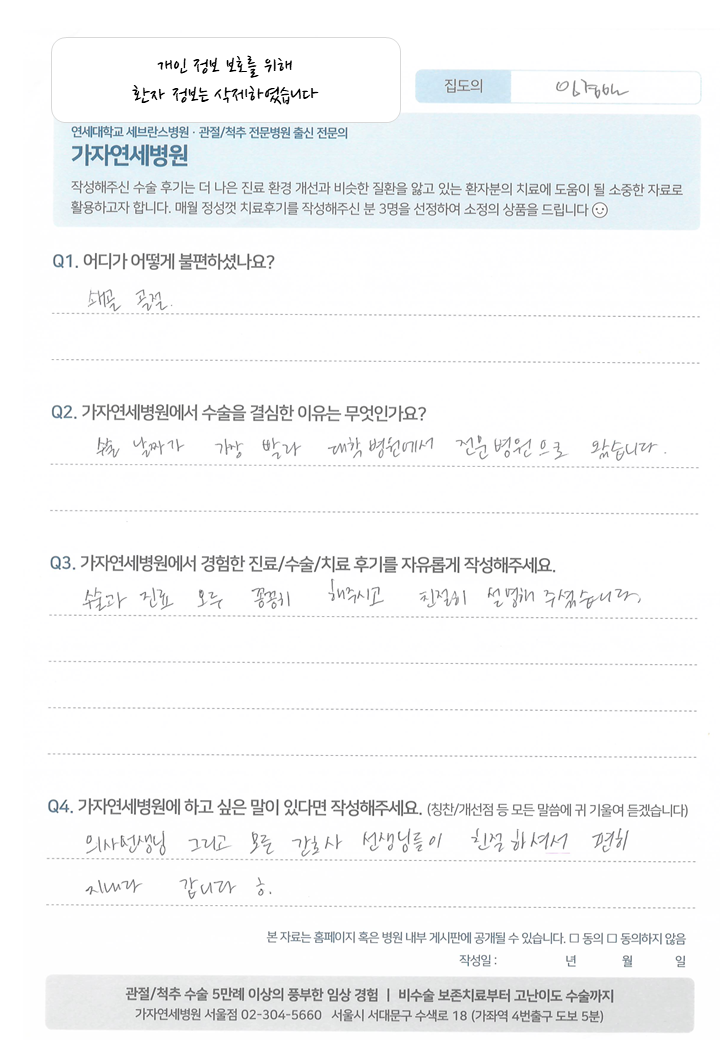 개인 정보 보호를 위해
환자 정보는 삭제하였습니다
집도의
연세대학교 세브란스병원 · 관절/척추 전문병원 출신 전문의
가자연세병원
작성해주신 수술 후기는 더 나은 진료 환경 개선과 비슷한 질환을 앓고 있는 환자분의 치료에 도움이 될 소중한 자료로
활용하고자 합니다. 매월 정성껏 치료후기를 작성해주신 분 3명을 선정하여 소정의 상품을 드립니다
Q1. 어디가 어떻게 불편하셨나요?
쇄골 골절.
Q2. 가자연세병원에서 수술을 결심한 이유는 무엇인가요?
수술 날짜가 가장 빨라 대학병원에서 전문병원으로 왔습니다.
Q3. 가자연세병원에서 경험한 진료/수술/치료 후기를 자유롭게 작성해주세요.
수술과 진료 모두 꼼꼼히 해주시고 친절히 설명해 주셨습니다.
Q4. 가자연세병원에 하고 싶은 말이 있다면 작성해주세요. (칭찬/개선점 등 모든 말씀에 귀 기울여 듣겠습니다)
의사선생님 그리고 모든 간호사 선생님들이 친절하셔서 편히
지내다 갑니다
본 자료는 홈페이지 혹은 병원 내부 게시판에 공개될 수 있습니다. □ 동의 □ 동의하지 않음
작성일 : 년 월 일
관절/척추 수술 5만례 이상의 풍부한 임상 경험 | 비수술 보존치료부터 고난이도 수술까지
가자연세병원 서울점 02-304-5660 서울시 서대문구 수색로 18 (가좌역 4번출구 도보 5분)